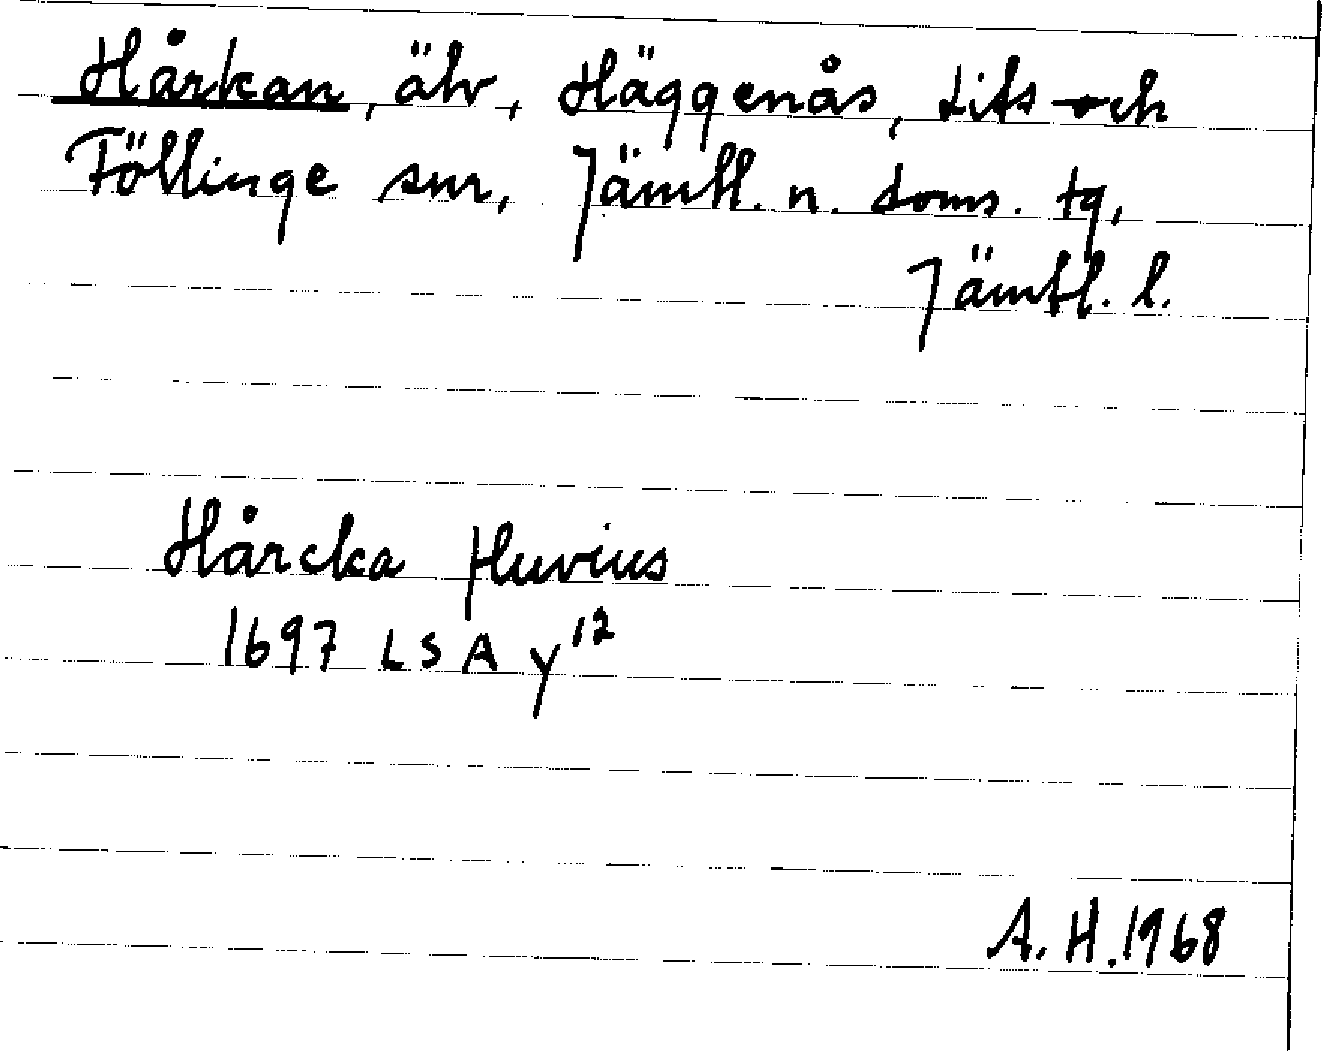 Hårkan, älv, Häggenås, Lits och
Föllinge snr, Jämtl. n. doms. tg,
Jämtl. l.
Hårcka fluvius
1697 LSA y¹²
A. H. 1968